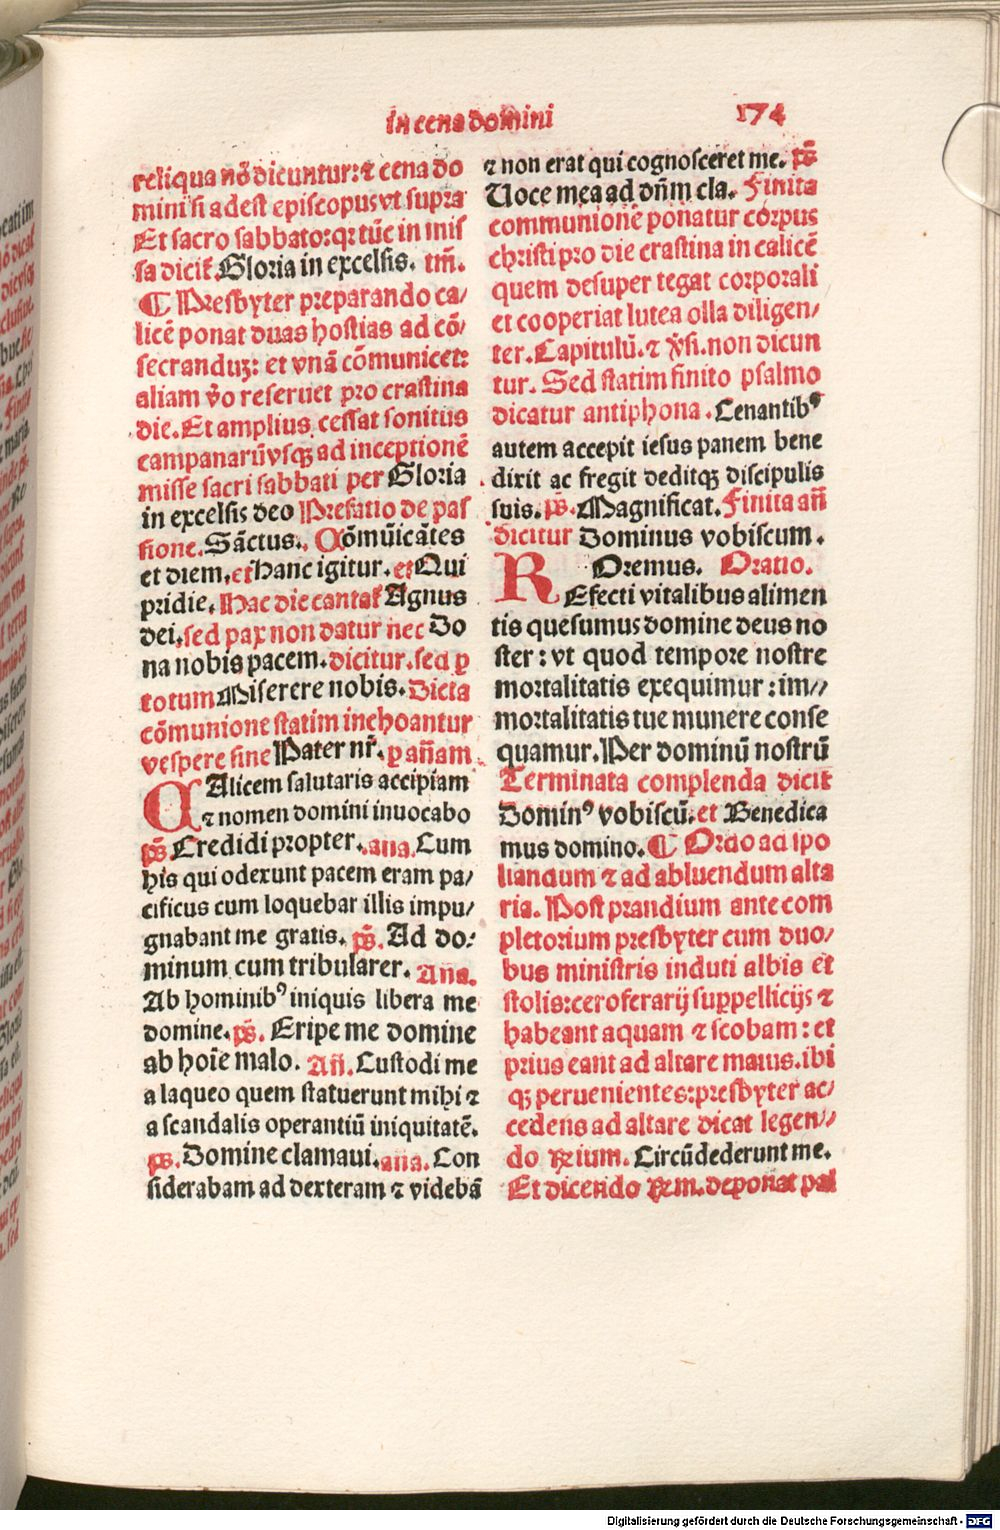 In cena domini
174
reliqua nō dicuntur: ⁊ cena do
mini si adest episcopus vt supra
Et sacro sabbato: qꝛ tūc in mis
sa dicit᷑ Gloria in excelsis. tm̄.
¶ Presbyter preparando ca/
licē ponat duas hostias ad cō/
secranduꝫ: et vnā cōmunicet:
aliam v̄o reseruet pro crastina
die. Et amplius cessat sonitus
campanarū vsqꝫ ad inceptionē
misse sacri sabbati per Gloria
in excelsis deo Prefatio de pas
sione. Sāctus. Cōmūicātes
et diem. et Hanc igitur. et Qui
pridie. Hac die cantat᷑ Agnus
dei. sed pax non datur nec Do
na nobis pacem. dicitur. sed ꝑ
totum Miserere nobis. Dicta
cōmunione statim inchoantur
vespere sine Pater nr̄. ꝑ an̄am
CAlicem salutaris accipiam
⁊ nomen domini inuocabo
ps̄. Credidi propter. ana. Cum
his qui oderunt pacem eram pa/
cificus cum loquebar illis impu/
gnabant me gratis. ps̄. Ad do:
minum cum tribularer. Ana.
Ab hominibꝰ iniquis libera me
domine. ps̄. Eripe me domine
ab hoīe malo. An̄. Custodi me
a laqueo quem statuerunt mihi ⁊
a scandalis operantiū iniquitatē.
ps̄. Domine clamaui. ana. Con
siderabam ad dexteram ⁊ videbā
⁊ non erat qui cognosceret me. ps̄
Uoce mea ad dn̄m cla. Finita
communionē ponatur corpus
christi pro die crastina in calicē
quem desuper tegat corporali
et cooperiat lutea olla diligen/
ter. Capitulū. ⁊ v̄si. non dicun
tur. Sed statim finito psalmo
dicatur antiphona. Cenantibꝰ
autem accepit iesus panem bene
dixit ac fregit deditqꝫ discipulis
suis. ps̄. Magnificat. Finita an̄
dicitur Dominus vobiscum.
Oremus. Oratio.
REfecti vitalibus alimen
tis quesumus domine deus no
ster: vt quod tempore nostre
mortalitatis exequimur: im//
mortalitatis tue munere conse
quamur. Per dominū nostrū
Terminata complenda dicit
Dominꝰ vobiscū. et Benedica
mus domino. ¶ Ordo ad spo
liandum ⁊ ad abluendum alta
ria. Post prandium ante com
pletorium presbyter cum duo/
bus ministris induti albis et
stolis: ceroferarij suppellicijs ⁊
habeant aquam ⁊ scobam: et
prius eant ad altare maius. ibi
qꝫ peruenientes: presbyter ac/
cedens ad altare dicat legen//
do ꝶium. Circūdederunt me.
Et dicendo ꝶm. deponat pal
Digitalisierung gefördert durch die Deutsche Forschungsgemeinschaft - DFG